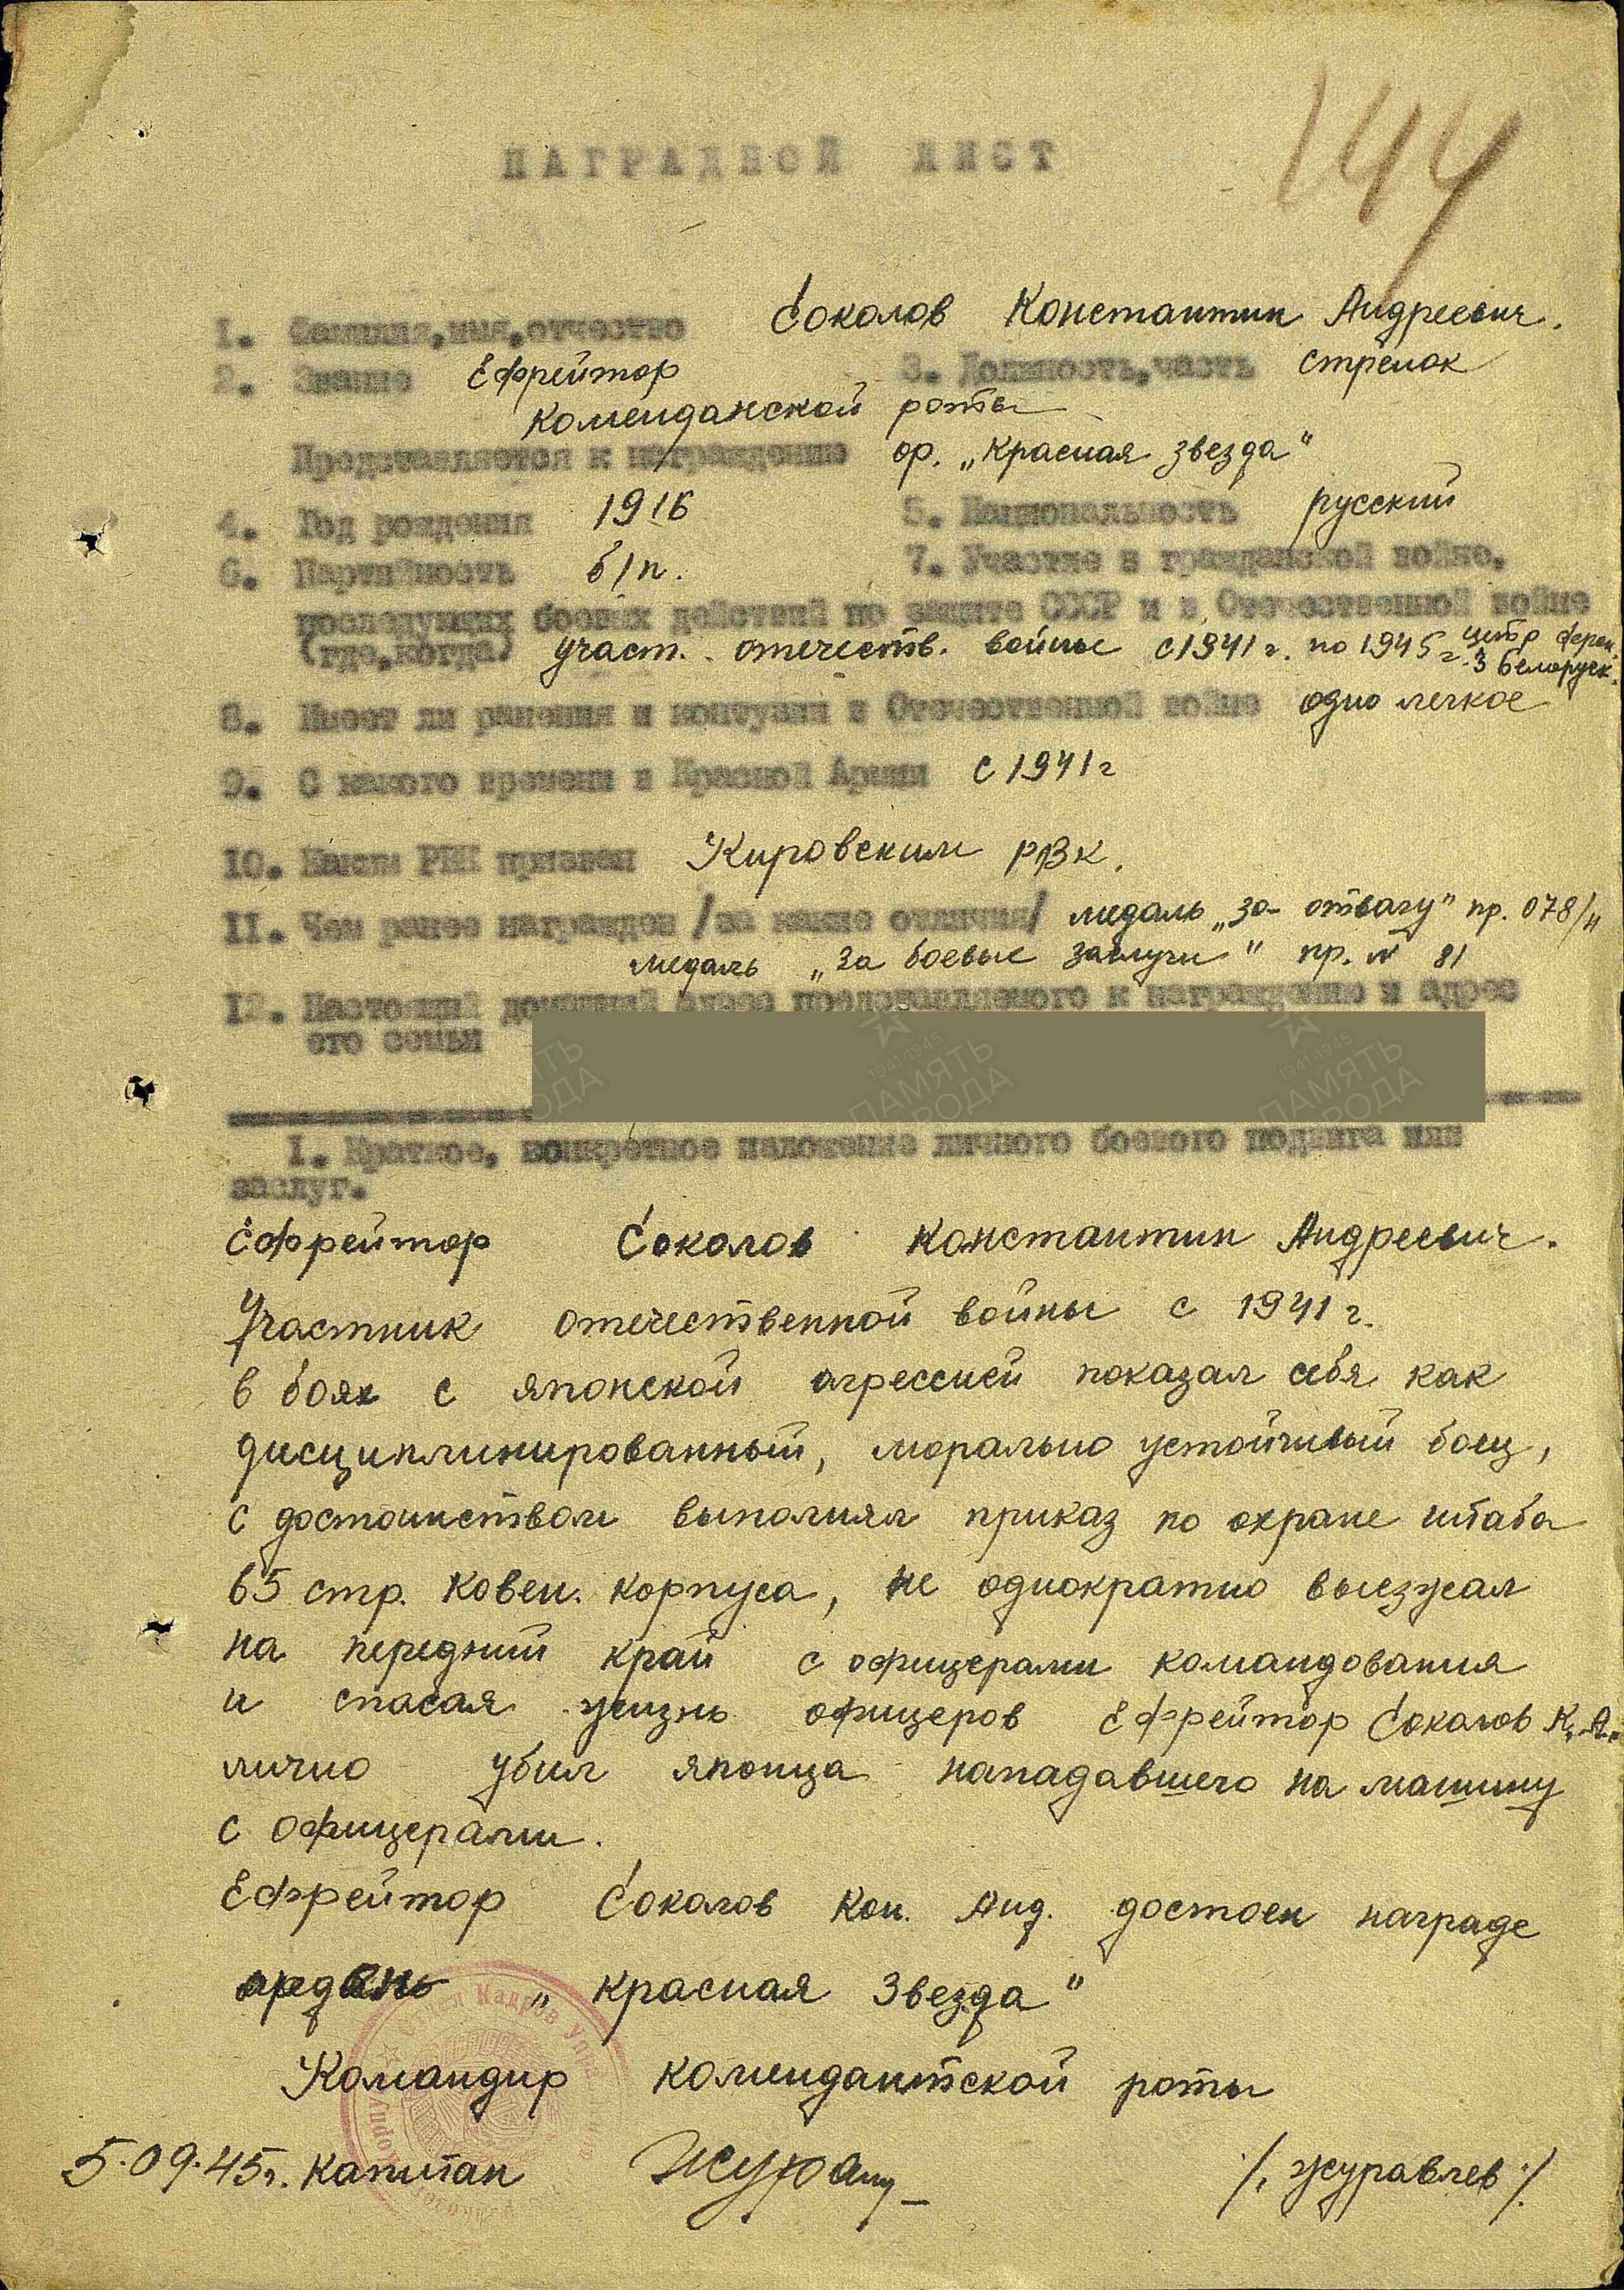 144
НАГРАДНОЙ ЛИСТ
1. Фамилия, имя, отчество Соколов Константин Андреевич.
2. Звание Ефрейтор 3. Должность, часть стрелок
комендансокой роты
Представляется к награждению ор. „Красная звезда"
4. Год рождения 1916 5. Национальность русский
6. Партийность б/п. 7. Участие в гражданской войне,
последующих боевых действий по защите СССР и в Отечественной войне
(где, когда) участ. отечеств. войны с 1941 г. по 1945 г. 3 Белорусск.
8. Имеет ли ранения и контузии в Отечественной войне одно легкое
9. С какого времени в Красной Армии с 1941 г
10. Каким РВК призван Кировским РВК.
11. Чем ранее награжден /за какие отличия/ медаль „За отвагу" пр. 078/н
медаль „За боевые заслуги" пр. № 81
12. Настоящий домашний адрес представляемого к награждению и адрес
его семьи
1. Краткое, конкретное изложение личного боевого подвига или
заслуг.
Ефрейтор Соколов Константин Андреевич.
Участник отечественной войны с 1941 г.
в боях с японской агрессией показал себя как
дисциплинированный, морально устойчивый боец,
с достоинством выполнял приказ по охране штаба
65 стр. Ковен. корпуса, не однократно выезжал
на передний край с офицерами командования
и спасая жизнь офицеров Ефрейтор Соколов К. А.
лично убил японца нападавшего на машину
с офицерами.
Ефрейтор Соколов Кон. Анд. достоен награде
ордень „Красная Звезда"
Командир комендантской роты
5.09.45 г. капитан /Журавлев/
Отдел Кадров